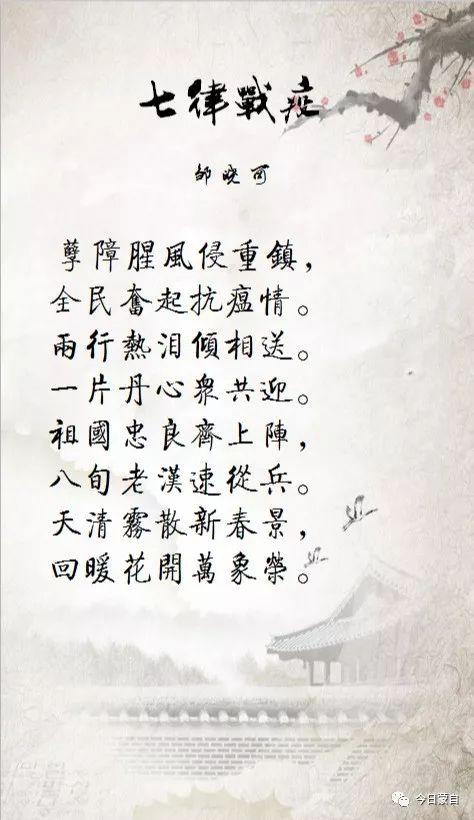 七律戰疫
邹晓可
孽障腥風侵重鎮，
全民奮起抗瘟情。
兩行熱泪傾相送。
一片丹心衆共迎。
祖國忠良齊上陣，
八旬老漢速從兵。
天清霧散新春景，
回暖花開萬象榮。
今日蒙自